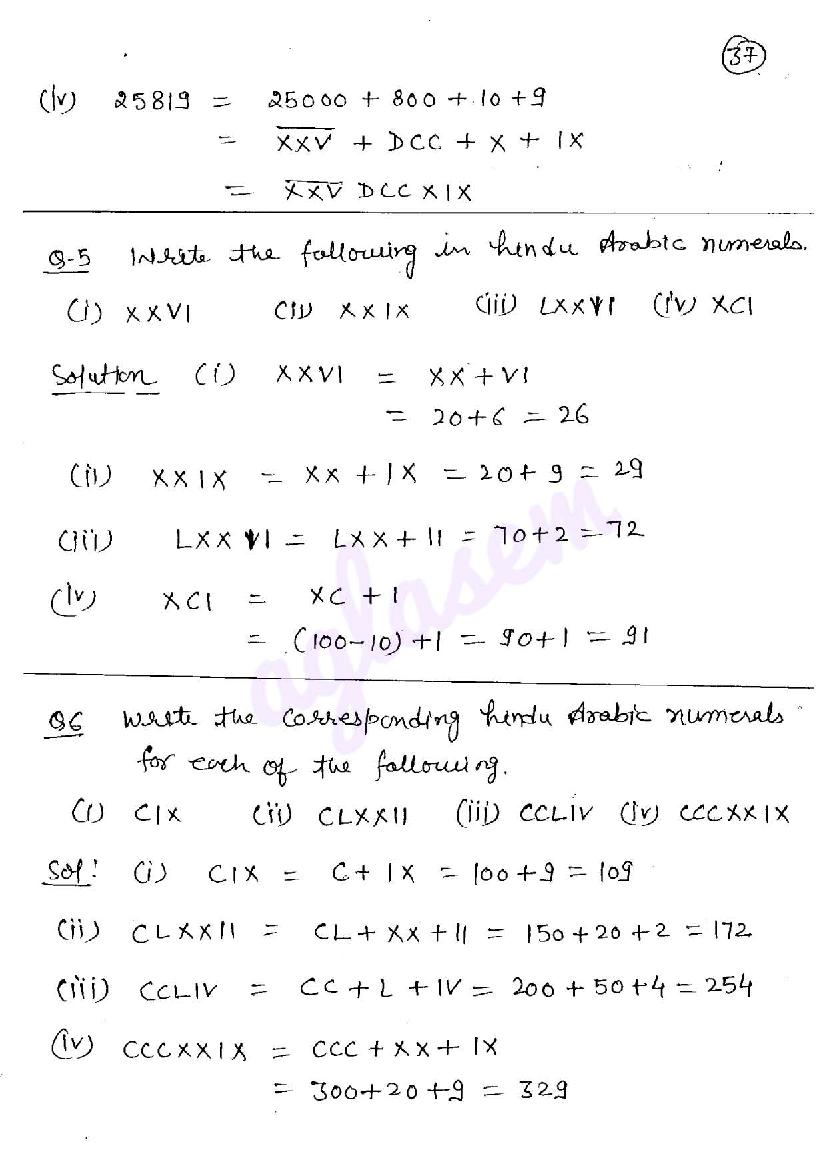 37
(iv) 25819 = 25000 + 800 + 10 + 9
= X̅X̅V̅ + DCC + X + IX
= X̅X̅V̅ DCC XIX
Q-5 Write the following in hindu Arabic numerals.
(i) XXVI (ii) XXIX (iii) LXXII (iv) XCI
Solution (i) XXVI = XX + VI
= 20+6 = 26
(ii) XXIX = XX + IX = 20+9 = 29
(iii) LXXII = LXX + II = 70+2 = 72
(iv) XCI = XC + I
= (100-10) + 1 = 90+1 = 91
Q6 Write the corresponding hindu Arabic numerals
for each of the following.
(i) CIX (ii) CLXXII (iii) CCLIV (iv) CCCXXIX
Sol: (i) CIX = C + IX = 100+9 = 109
(ii) CLXXII = CL + XX + II = 150+20+2 = 172
(iii) CCLIV = CC + L + IV = 200+50+4 = 254
(iv) CCCXXIX = CCC + XX + IX
= 300+20+9 = 329
aglasem